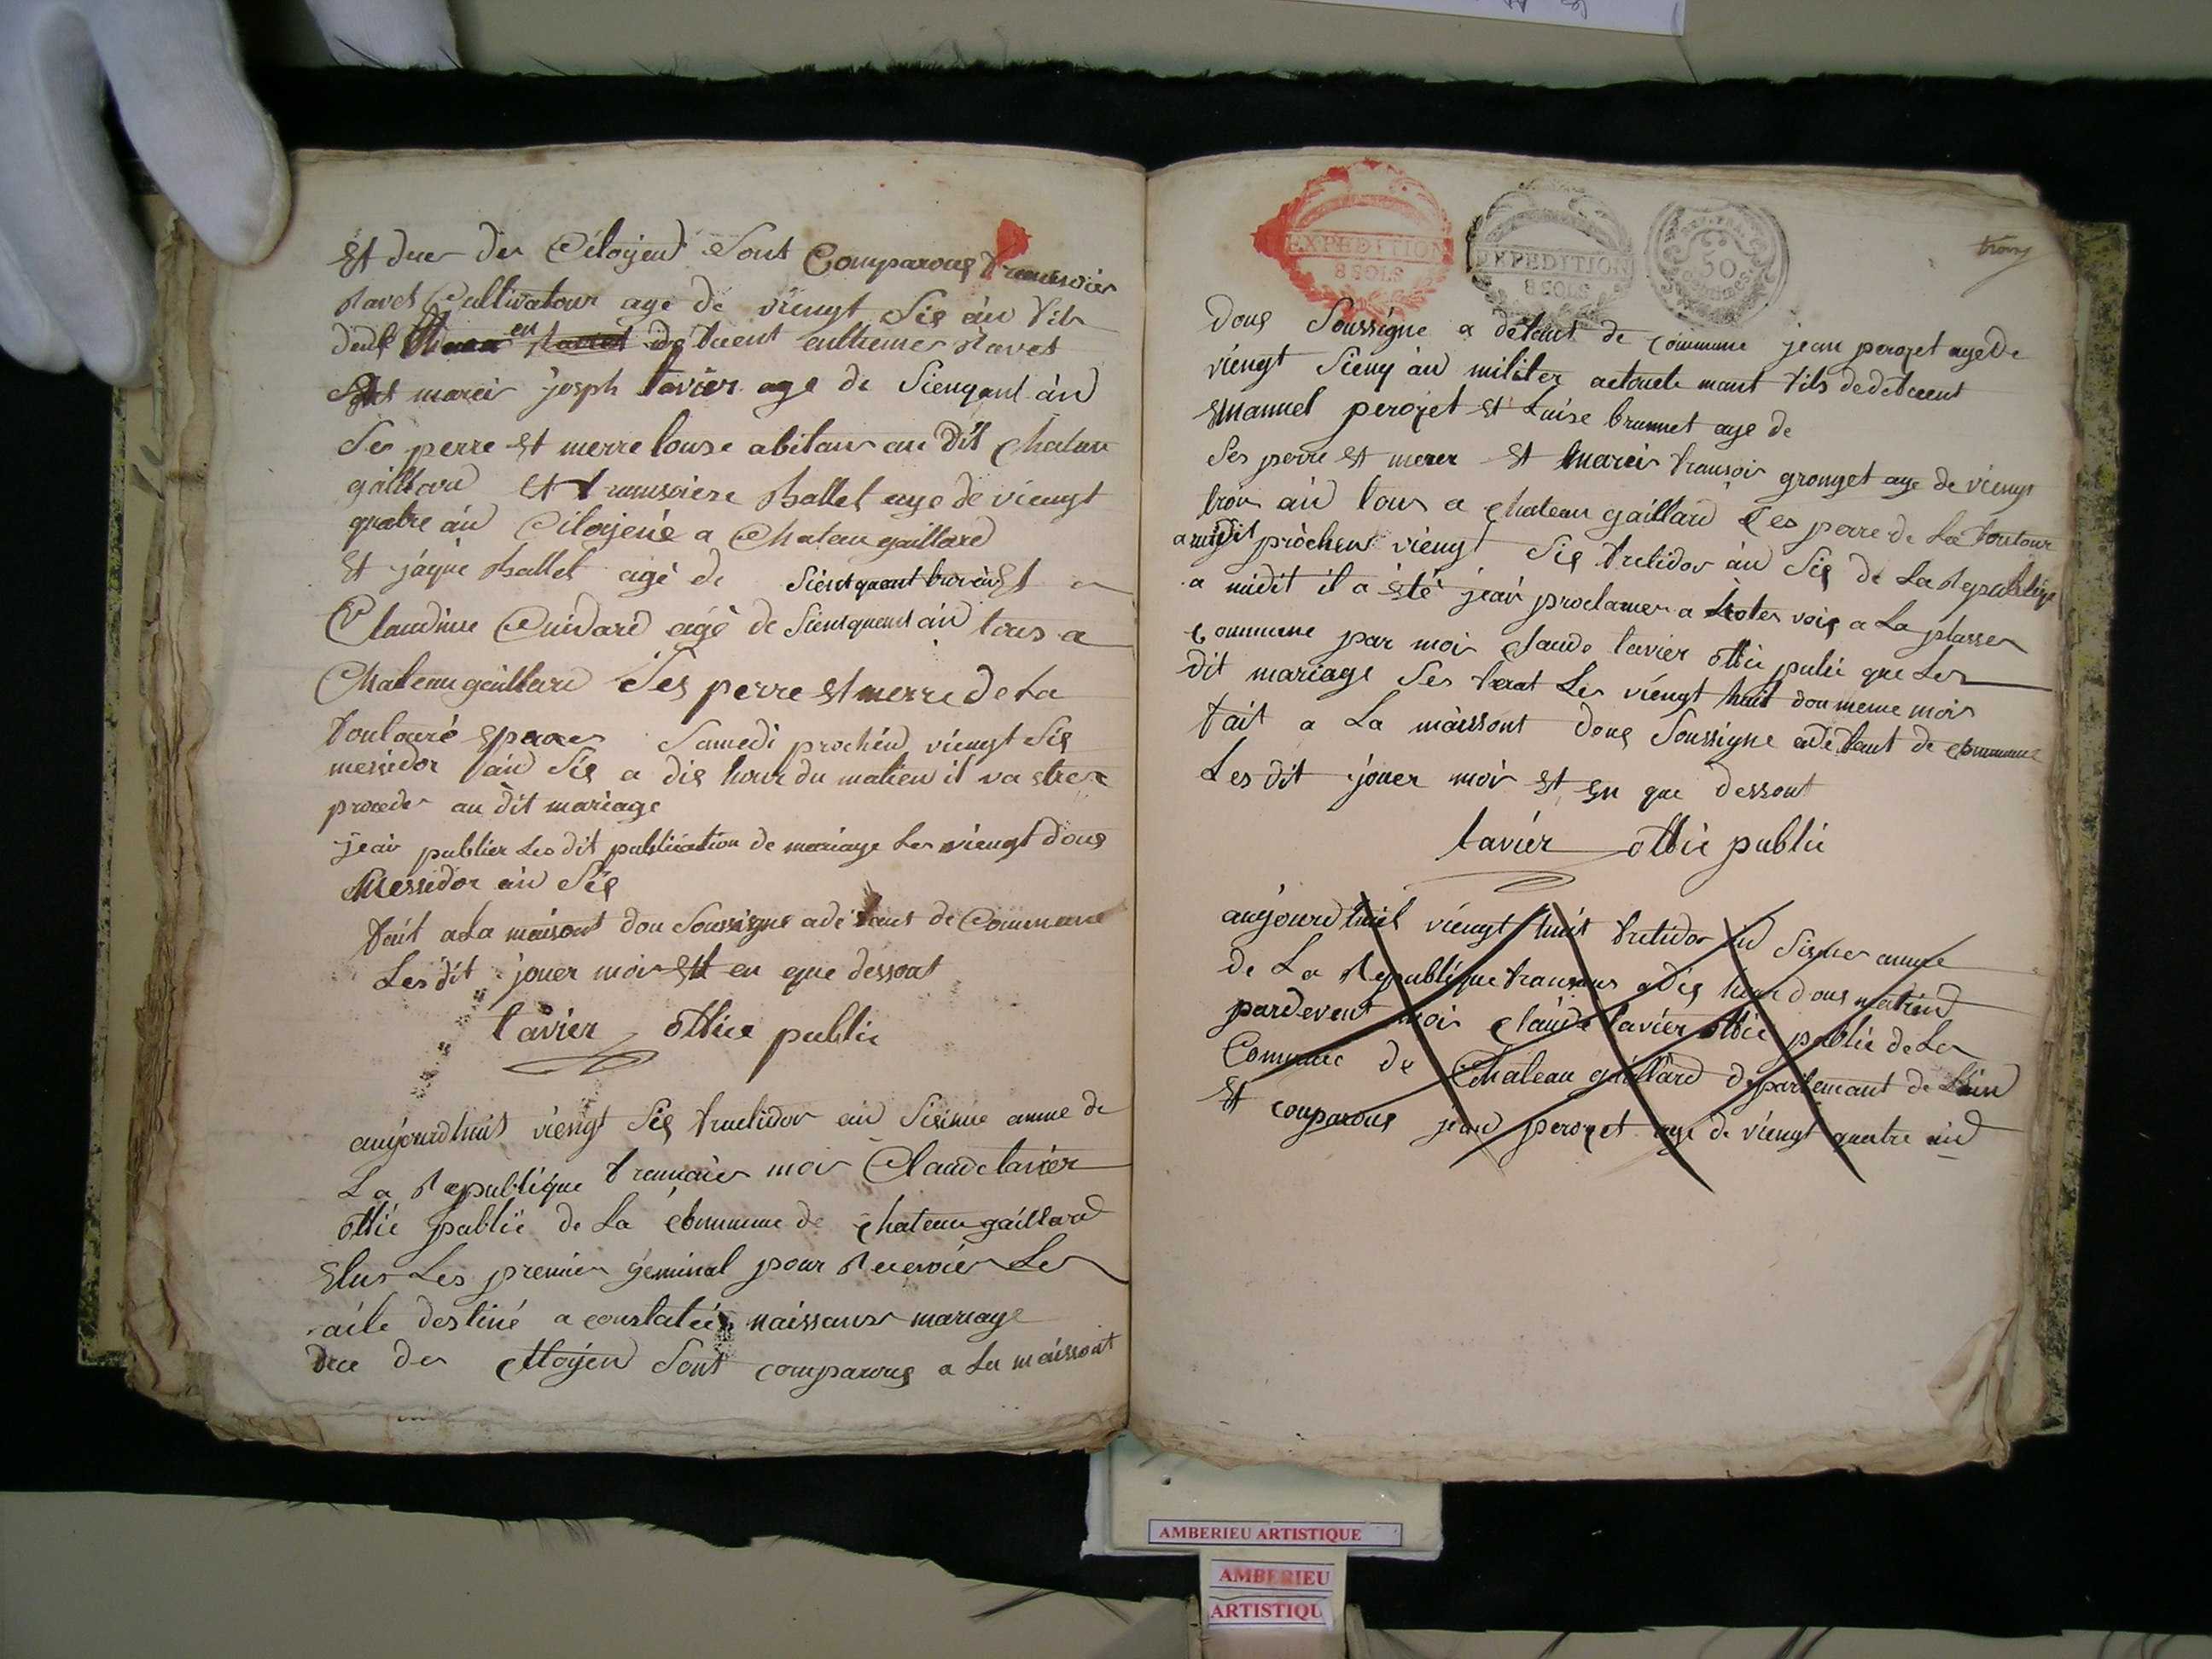 Et deer der Citoyend Sont Comparoug
Ravet Cultivatour age de viengt Sig ân fils
en
de tuent enthemer Ravet
marei josph tavier age de Siengant ând
Ses perre Et merre louse abitans au dit Chatau
gaillard Et Hallet age de viengt
quatre ân Citoyene a Chateau gaillard
Et jâque Hallet agé de
Claudine Cuidard agé de Sienquent ân tous a
Chateau gaillard Ses perre Et merre de La
foutouré Samedi prochên viengt Sig
messidor ând Sig a dig hour du matien il va Etre
proceder au dit mariage
jeai publier Les dit publication de mariage Les viengt doug
Messidor ân Sig
fait a La maisont dou Soussigne a de faut de Commune
Les dit jouer moi Et en que dessout
tavier offie public
aujourdhui viengt Sig fructidor ân Sisime anne de
La Republique moi Claude tavier
offie public de La Commune de Chateau gaillard
Elus Les premier geminal pour Recevoier Les
aite destiné a constatér naissanse mariage
der Citoyen Sont comparoug a La maissont
EXPEDITION
8 SOLS
EXPEDITION
8 SOLS
50
Centimes
doug Soussigne a defaut de Commune jean peroget age de
viengt Sieng ân militer actouele mant fils de
Emanuel peroget Et Luise brunnet age de
Ses perre Et merer Et mareis fransois gronget age de viengt
trois ân tous a Chateau gaillard Ses perre de La foutour
prochens viengt Sig frutidor ân Sig de La Republiqe
a midit il a été jeai proclamer a hotes voig a La plasser
Commune par moi Claude tavier offie pulic que Les
dit mariage Ses ferat Les viengt huit dou meme mois
fait a La maissont doug Soussigne a de faut de Commune
Les dit jouer moi Et En que dessout
tavier offie public
aujourdhui viengt huit frutidor ând Sisime anne
de La Republique fransais a dig hour doug matiend
pardevent moi Claude tavier offie public de La
Commune de Chateau gaillard departemant de Lain
Et comparoug jeand peroget age de viengt quatre ând
AMBERIEU ARTISTIQUE
AMBERIEU
ARTISTIQU